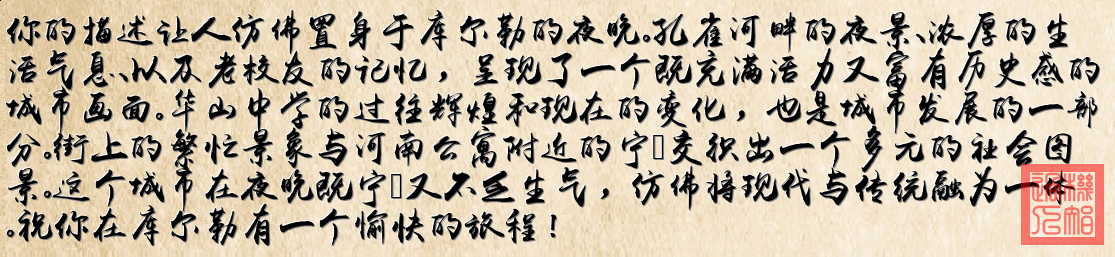 你的描述让人仿佛置身于库尔勒的夜晚。孔雀河畔的夜景、浓厚的生
活气息、以及老校友的记忆，呈现了一个既充满活力又富有历史感的
城市画面。华山中学的过往辉煌和现在的变化，也是城市发展的一部
分。街上的繁忙景象与河南公寓附近的宁□交织出一个多元的社会图
景。这个城市在夜晚既宁□又不乏生气，仿佛将现代与传统融为一体
。祝你在库尔勒有一个愉快的旅程！